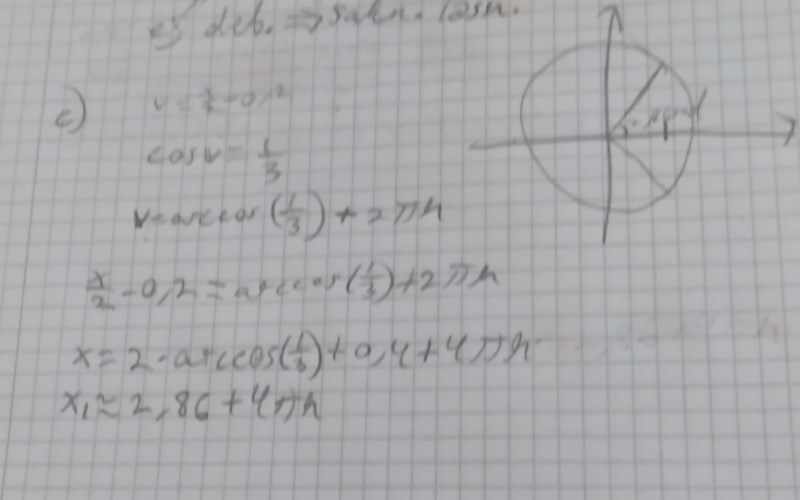 ej def. ⇒ sakn. lösn.
c)
cos v = 1/3
v = arccos(1/3) + 2πn
x/2 - 0,2 = arccos(1/3) + 2πn
x = 2·arccos(1/3) + 0,4 + 4πn
x₁ ≈ 2,86 + 4πn